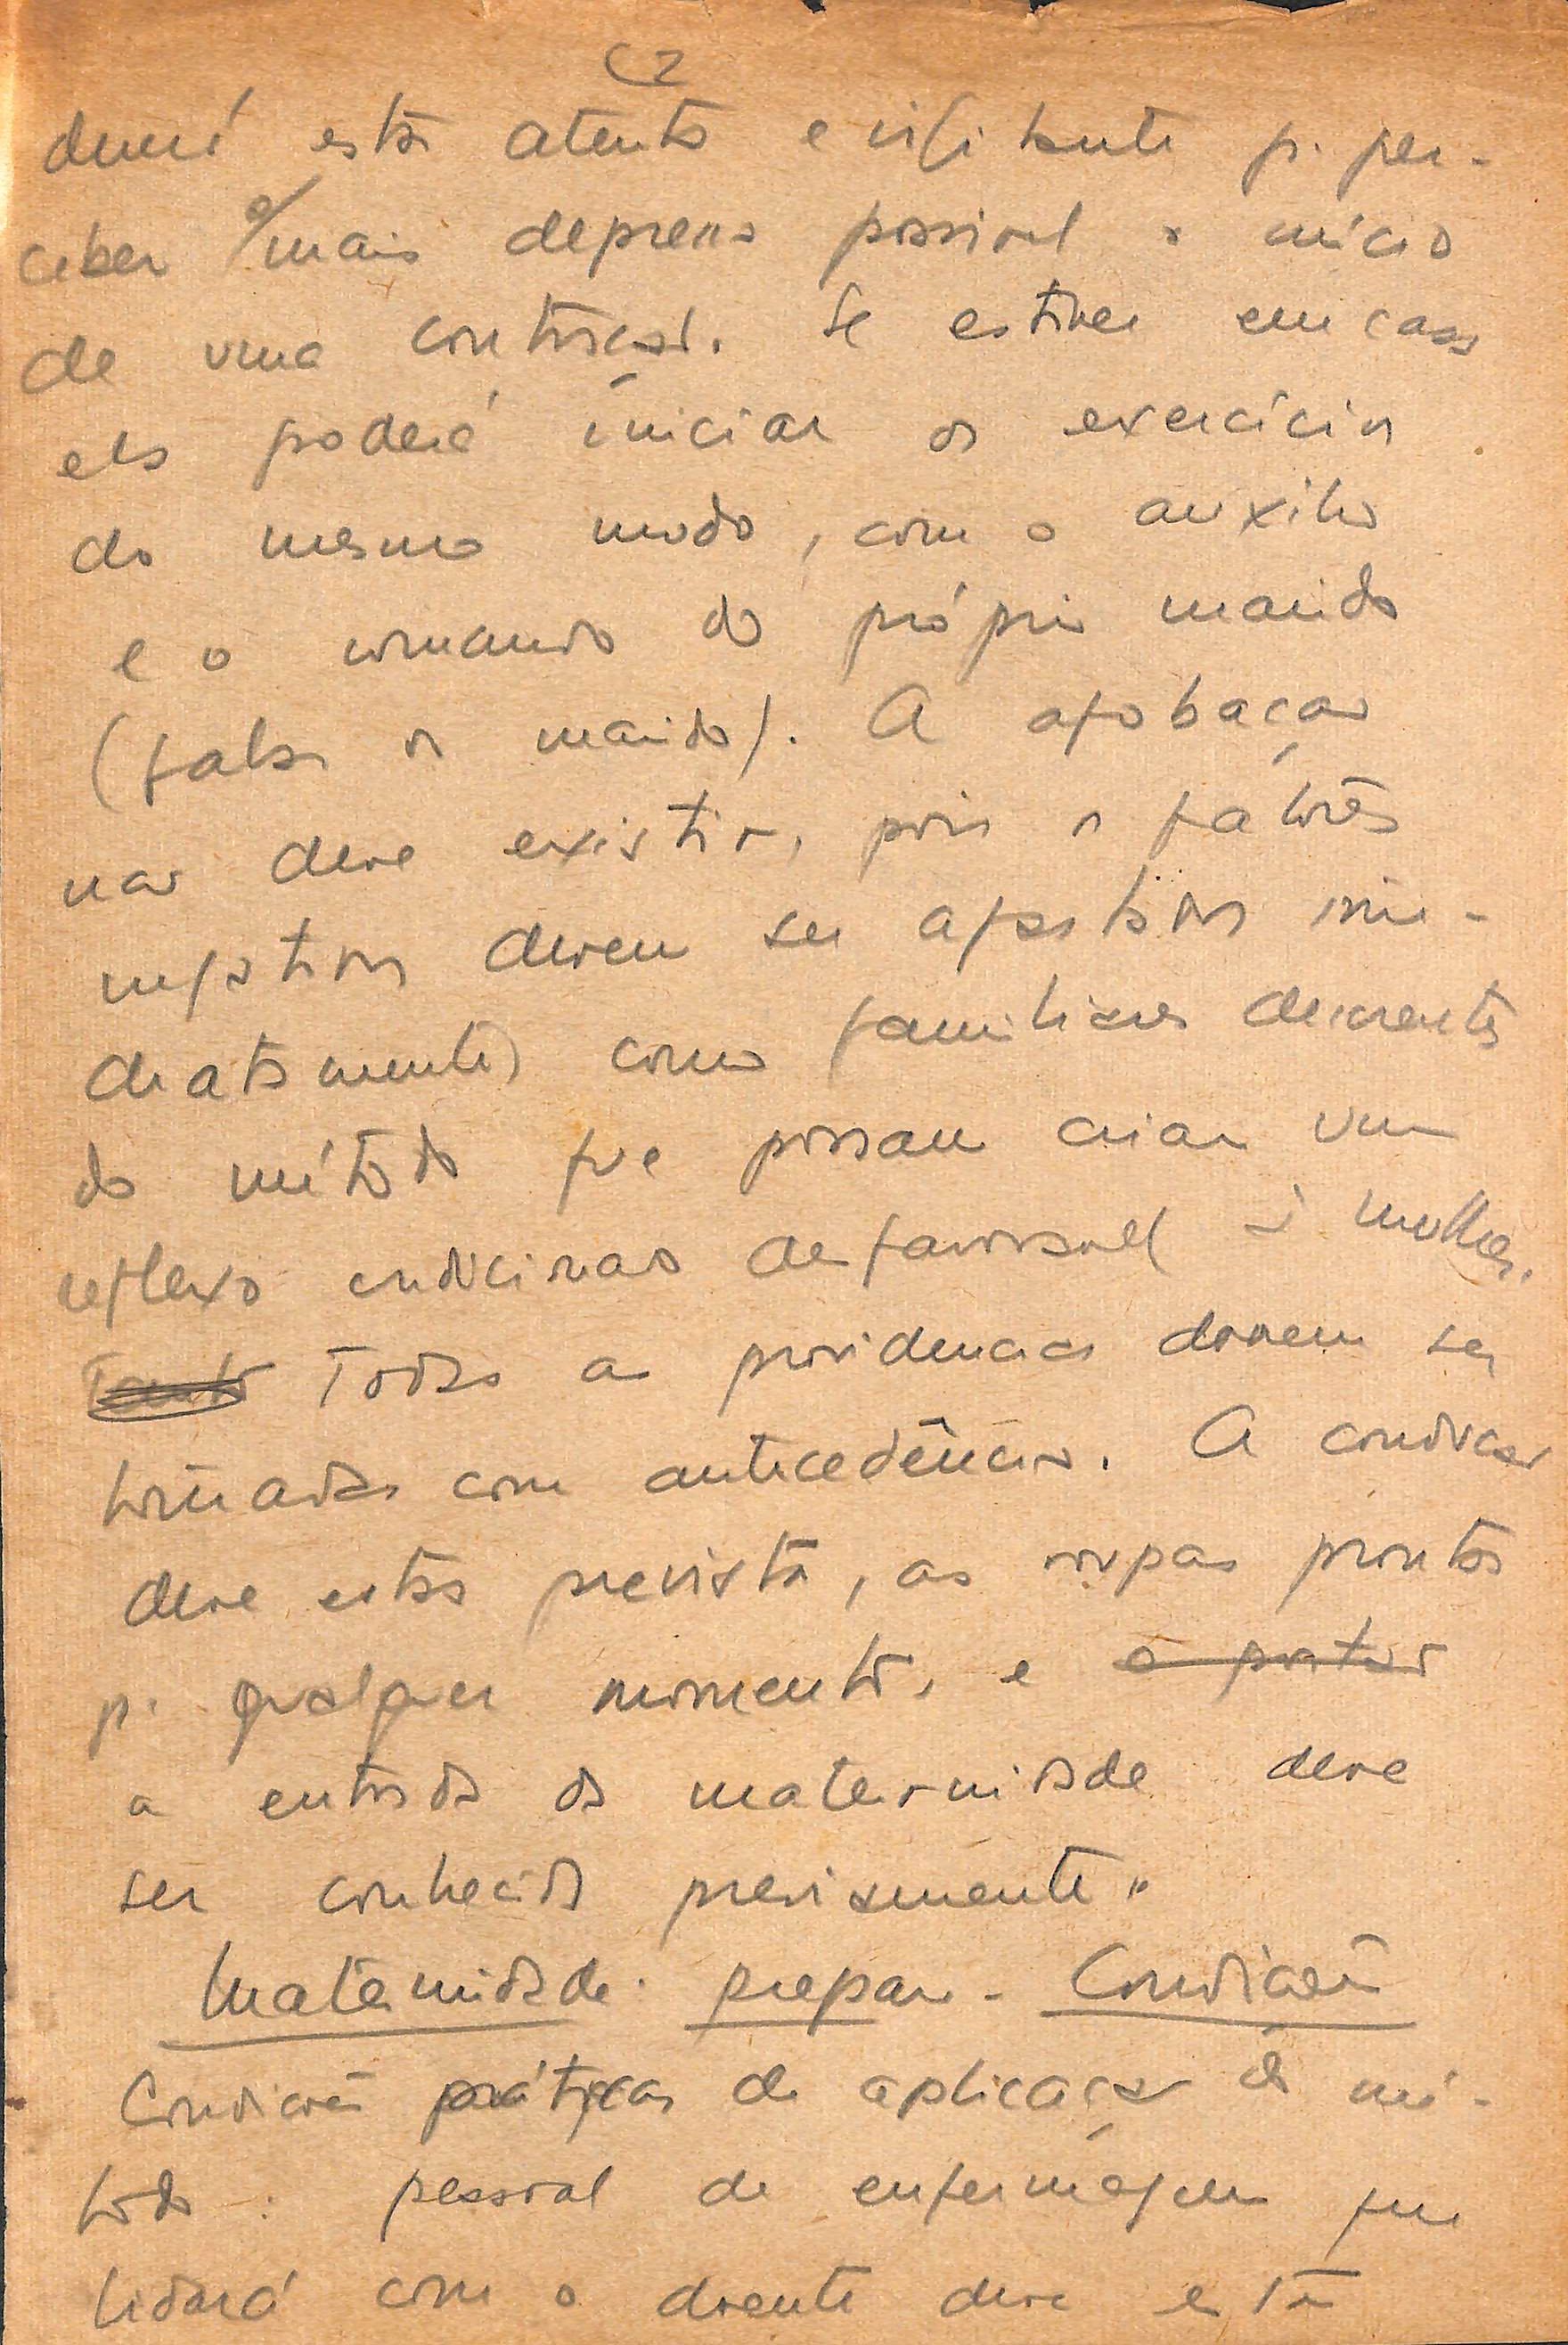 deverá estar atenta e vigilante p. per-
ceber o mais depressa possivel o início
de uma contração. Se estiver em casa
ela poderá iniciar os exercícios
do mesmo modo, com o auxilio
e o comando do próprio marido
(falar os maridos). A afobação
não deve existir, pois os fatores
negativos devem ser afastados ime-
diatamente, como familiares descrentes
do método que possam criar um
reflexo condicionado desfavoravel à mulher.
Tanto Todas as providencias devem ser
tomadas com antecedência. A condução
deve estar prevista, as roupas prontas
p. qualquer momento, e a
a entrada da maternidade deve
ser conhecida previamente.
Maternidade. prepar. Condições
Condições práticas de aplicação do mé-
todo: pessoal de enfermagem que
lidará com o doente deve estar